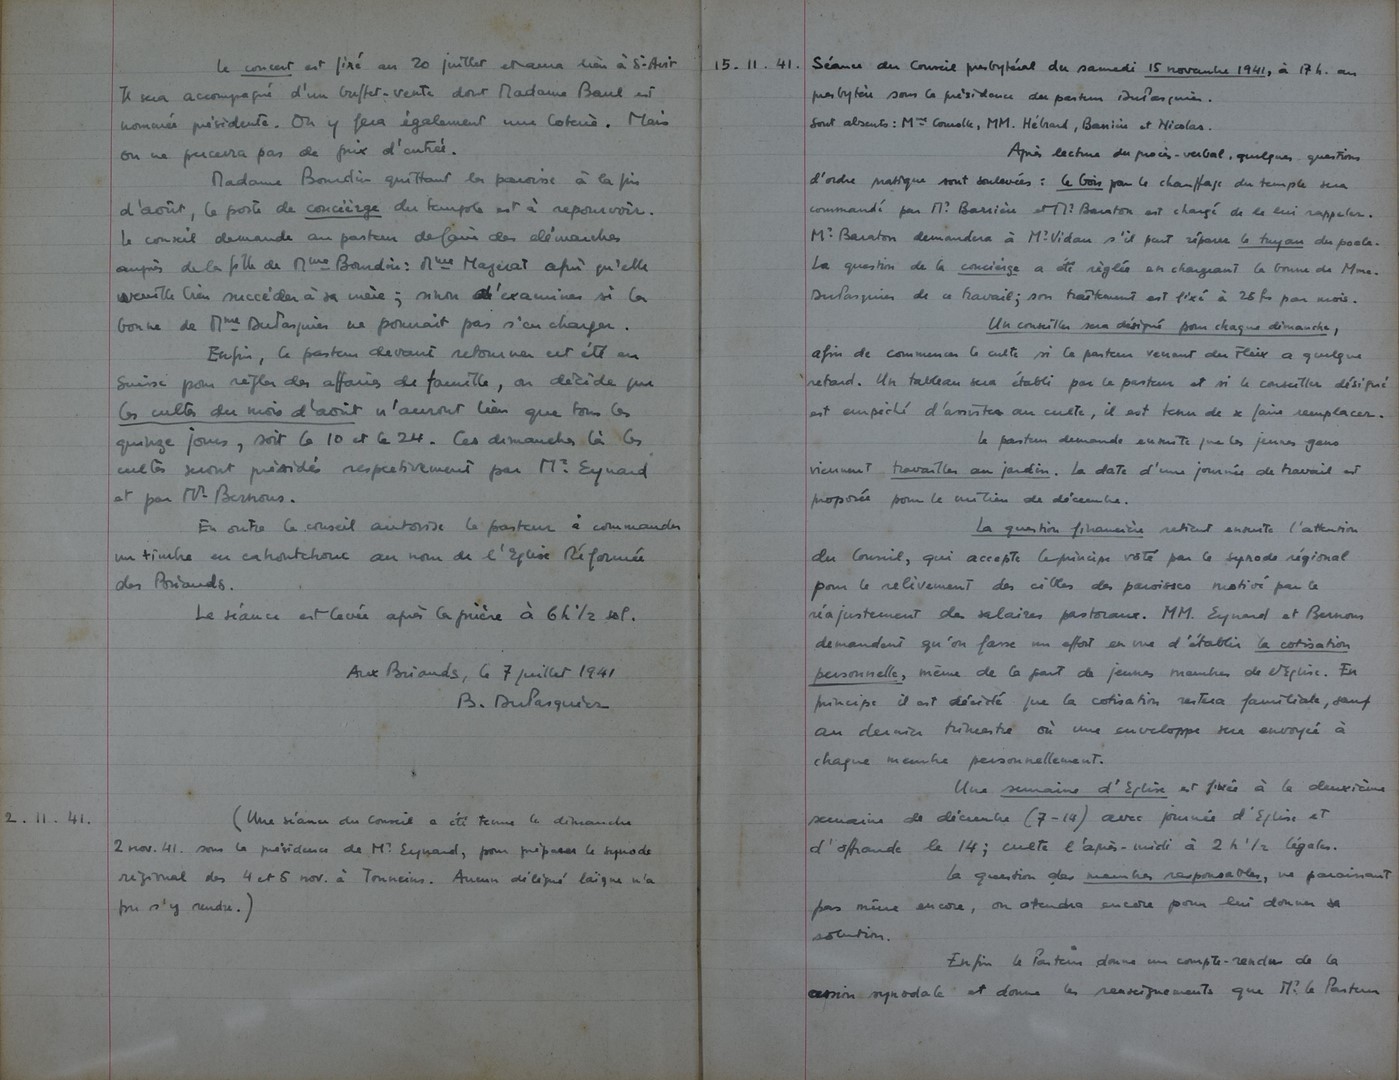 Le concert est fixé au 20 juillet et aura lieu à St-Avit
Il sera accompagné d'un buffet-vente dont Madame Baul est
nommée présidente. On y fera également une loterie. Mais
on ne percevra pas de prix d'entrée.
Madame Bourdin quittant la paroisse à la fin
d'août, le poste de concierge du temple est à repourvoir.
Le conseil demande au pasteur de faire des démarches
auprès de la fille de Mme Bourdin: Mme Mazérat afin qu'elle
veuille bien succéder à sa mère; sinon d'examiner si la
bonne de Mme DuPasquier ne pourrait pas s'en charger.
Enfin, le pasteur devant retourner cet été en
Suisse pour régler des affaires de famille, on décide que
les cultes du mois d'août n'auront lieu que tous les
quinze jours, soit le 10 et le 24. Ces dimanches là les
cultes seront présidés respectivement par Mr. Eynard
et par Mr. Bernous.
En outre le conseil autorise le pasteur à commander
un timbre en cahoutchouc au nom de l'Eglise Réformée
des Briands.
La séance est levée après la prière à 6h 1/2 sol.
Aux Briands, le 7 juillet 1941
B. DuPasquier
2. 11. 41.
(Une séance du Conseil a été tenue le dimanche
2 nov. 41. sous la présidence de Mr. Eynard, pour préparer le synode
régional des 4 et 5 nov. à Tonneins. Aucun délégué laïque n'a
pu s'y rendre.)
15. 11. 41. Séance du Conseil presbytéral du samedi 15 novembre 1941, à 17 h. au
presbytère sous la présidence du pasteur DuPasquier.
Sont absents: Mme MM. Hébrard, Barrière et Nicolas.
Après lecture du procès-verbal, quelques questions
d'ordre pratique sont soulevées: le bois pour le chauffage du temple sera
commandé par Mr. Barrière et Mr. Baraton est chargé de le lui rappeler.
Mr. Baraton demandera à Mr. Vidau s'il peut réparer le tuyau du poele.
La question de la concierge a été réglée en chargeant la bonne de Mme.
DuPasquier de ce travail; son traitement est fixé à 25 frs par mois.
Un conseiller sera désigné pour chaque dimanche,
afin de commencer le culte si le pasteur venant du Fleix a quelque
retard. Un tableau sera établi par le pasteur et si le conseiller désigné
est empêché d'assister au culte, il est tenu de se faire remplacer.
Le pasteur demande ensuite que les jeunes gens
viennent travailler au jardin. La date d'une journée de travail est
proposée pour le milieu de décembre.
La question financière retient ensuite l'attention
du Conseil, qui accepte le principe voté par le synode régional
pour le relèvement des cibles des paroisses motivé par le
réajustement des salaires pastoraux. MM. Eynard et Bernous
demandent qu'on fasse un effort en vue d'établir la cotisation
personnelle, même de la part de jeunes membres de l'Eglise. En
principe il est décidé que la cotisation restera familiale, sauf
au dernier trimestre où une enveloppe sera envoyée à
chaque membre personnellement.
Une semaine d'Eglise est fixée à la deuxième
semaine de décembre (7-14) avec journée d'Eglise et
d'offrande le 14; culte l'après-midi à 2 h 1/2 légales.
La question des membres responsables, ne paraissant
pas mûre encore, on attendra encore pour lui donner sa
solution.
Enfin le Pasteur donne un compte-rendu de la
session synodale et donne les renseignements que Mr. le Pasteur